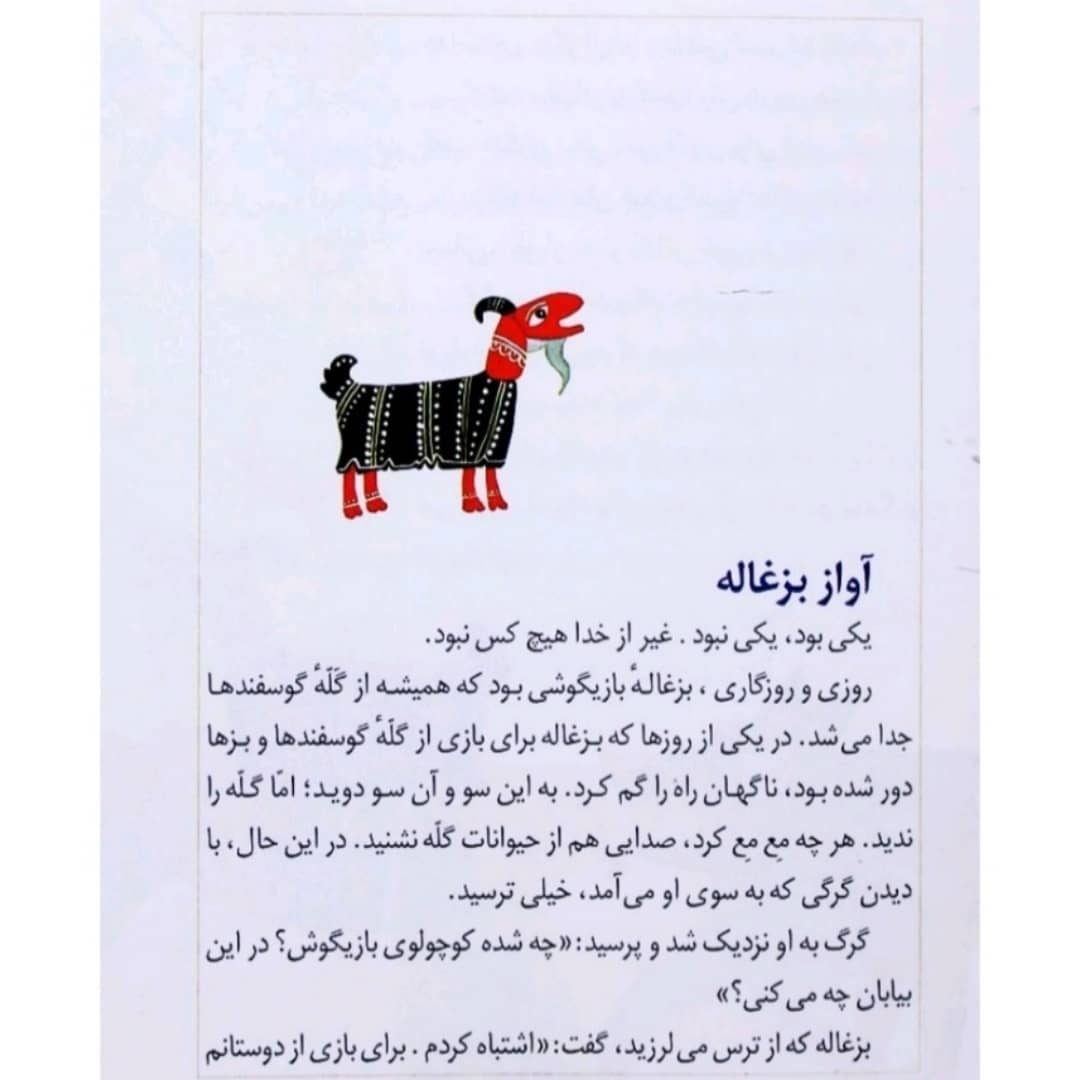 آواز بزغاله
یکی بود، یکی نبود . غیر از خدا هیچ کس نبود.
روزی و روزگاری ، بزغالهٔ بازیگوشی بود که همیشه از گَلّهٔ گوسفندها
جدا می‌شد. در یکی از روزها که بزغاله برای بازی از گلّهٔ گوسفندها و بزها
دور شده بود، ناگهان راه را گم کرد. به این سو و آن سو دوید؛ امّا گلّه را
ندید. هر چه مِع مِع کرد، صدایی هم از حیوانات گلّه نشنید. در این حال، با
دیدن گرگی که به سوی او می‌آمد، خیلی ترسید.
گرگ به او نزدیک شد و پرسید:«چه شده کوچولوی بازیگوش؟ در این
بیابان چه می کنی؟»
بزغاله که از ترس می‌لرزید، گفت:«اشتباه کردم . برای بازی از دوستانم